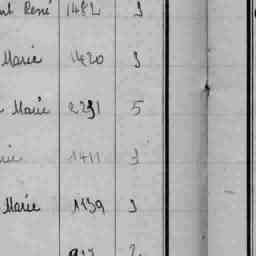 René 1482 3
Marie 1420 3
Marie 2231 5
1411 3
Marie 1139 3